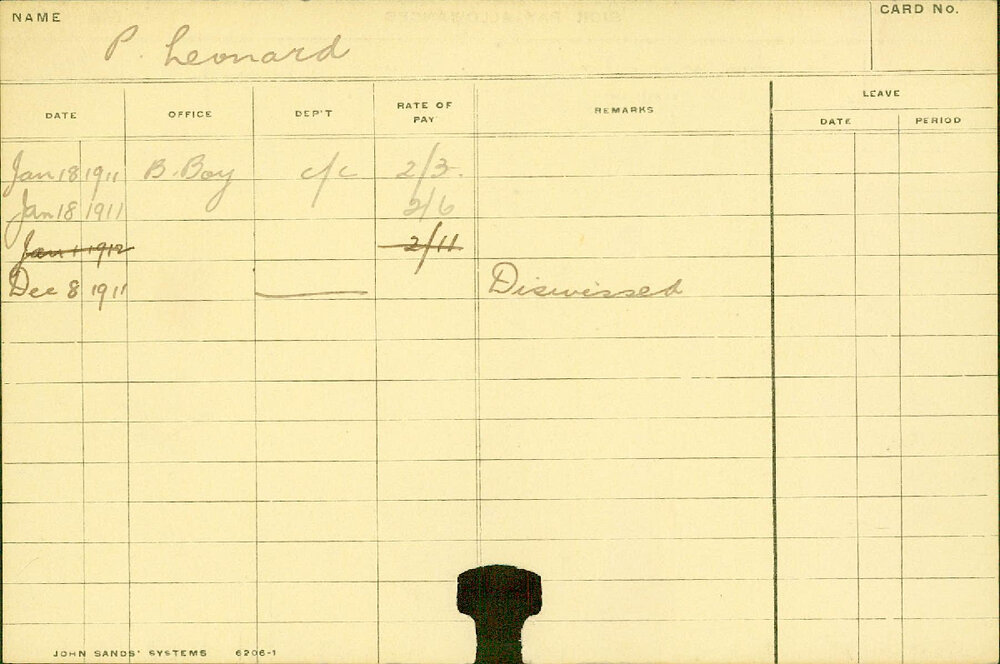 NAME
CARD No.
P. Leonard
DATE OFFICE DEP'T RATE OF PAY REMARKS LEAVE
DATE PERIOD
Jan 18 1911 B. Boy c/c 2/3.
Jan 18 1911 2/6
Jan 1 1912 2/11
Dec 8 1911 Dismissed
JOHN SANDS' SYSTEMS 6206-1